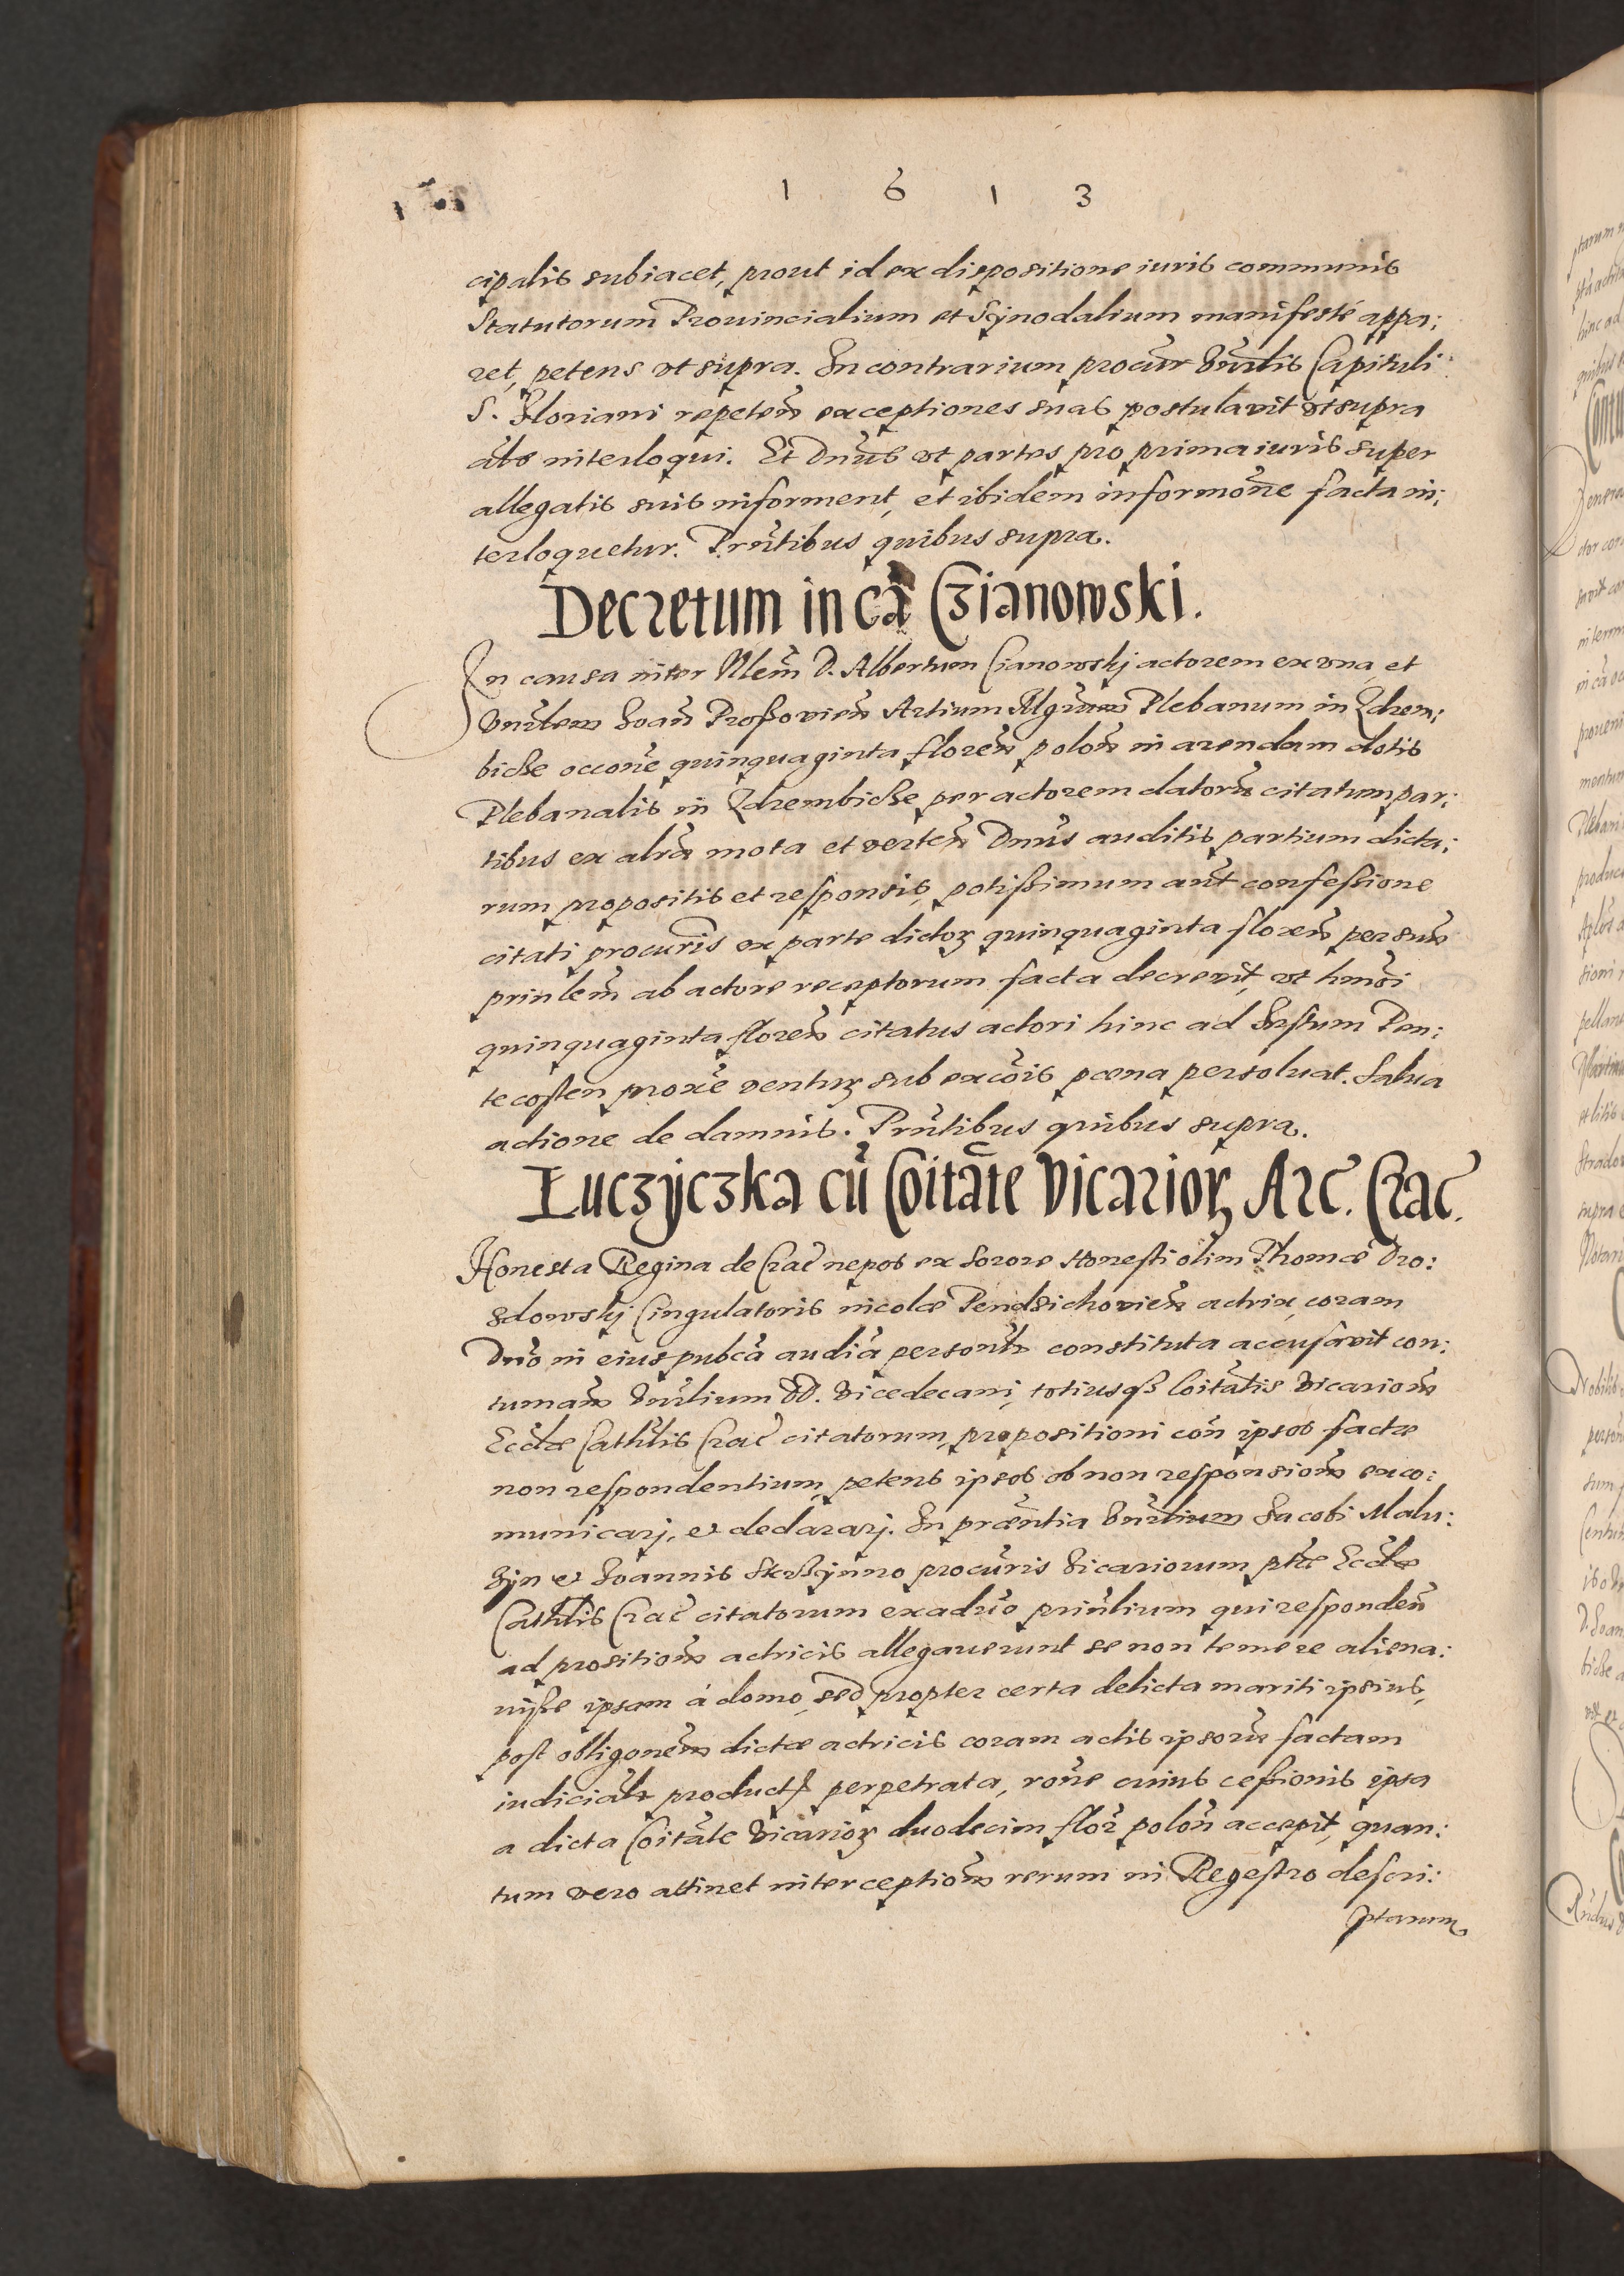 1 6 1 3
cipalis subiacet, prout id ex dispositione iuris communis
Statutorum Prouincialium et Sÿnodalium manifesté appa:
ret, petens vt supra. In contrarium procur̃ Vñrlis Capituli
S. Floriani repeteñ exceptiones suas postulavit vt supra
interloqui. Et Dñus vt partes pro prima iuris super
allegatis suis informent, et ibidem informõne facta in:
terloquetur. Prñtibus quibus supra.
Decretum in cã Czianowski.
In causa inter D. Albertum Cianowskj actorem ex vna, et
Vñrlem Ioañ Proßovień Artium Plebanum in Zdrem:
biche occõne quinquaginta floreñ poloñ in arendam dotis
Plebanalis in Zdrembiche per actorem datorũ citatum par:
tibus ex alrã mota et verteñ Dñus auditis partium dicta:
rum propositis et responsis, potißimum aut̃ confeßione
citati procuris̃ ex parte dictoꝝ quinquaginta floreñ per suũ
prinlem̃ ab actore receptorum facta decrevit, vt hmõi
quinquaginta floreñ citatus actori hinc ad Festum Pen:
tecosten proxẽ ventuꝝ sub excõis pœna persoluat. Salua
actione de damnis. Prñtibus quibus supra.
Łuczÿczka cũ Coitãte Vicarioꝝ Arc. Crac̃.
Honesta Regina de Crac̃ nepos ex sorore Honesti olim Thomæ Dro:
zdowskj Cingulatoris incolæ Pendzichovień actrix, coram
Dño in eius pub̃cã audiã personlr̃ constituta accusavit con:
tumaã Vñrlium DD. Vicedecani, totiusqꝫ Coitãtis Vicarioũ
Ecctæ̃ Cathlis̃ Crac̃ citatorum, propositioni coñ ipsos factæ
non respondentium, petens ipsos ob non responsioñ exco:
municarj, et declararj. In præñtia Vñrlium Iacobi Malu:
zÿn et Ioannis procuris̃ Vicariorum ptæ̃ Ecctæ̃
Cathlis̃ Crac̃ citatorum ex aduõ priñlium qui respondeñ
ad prositioñ actricis allegauerunt se non temere aliena:
uiße ipsam á domo, sed propter certa delicta mariti ipsius,
post obligonẽm dictæ actricis coram actis ipsorũ factam
iudicialr̃ perpetrata, rõne cuius ceßionis ipsa
a dicta Coitãte Vicarioꝝ duodecim flor̃ poloñ accepit, quan:
tum vero attinet interceptioñ rerum in Regestro descri:
ptarum